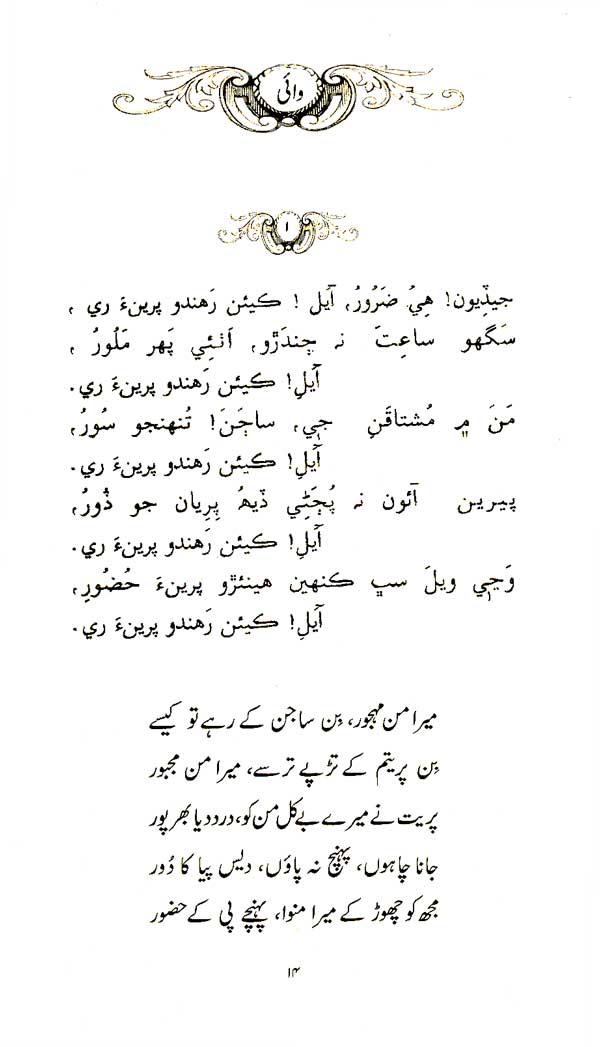 وائي
۱
جيڏيون! هِيُ ضَرُورُ، آيل! ڪيئن رَهندو پرينءَ ري،
سَگهو ساعِتَ نہ جِندَڙو، اَٺئِي پَهر مَلُورُ،
آيلِ! ڪيئن رَهندو پرينءَ ري.
مَنَ ۾ مُشتاقَنِ جي، ساڄَنَ! تُنهنجو سُورُ،
آيلِ! ڪيئن رَهندو پرينءَ ري.
پيرين آئون نہ پُڄَڻِي ڏيھُ پِرِيان جو ڏُورُ،
آيلِ! ڪيئن رَهندو پرينءَ ري.
وَڃي ويلَ سڀ ڪنهين هينئڙو پرينءَ حُضُورِ،
آيلِ! ڪيئن رَهندو پرينءَ ري.
میرا من مہجور، بِن ساجن کے رہے تو کیسے
بِن پریتم کے تڑپے ترسے، میرا من مجبور
پریت نے میرے بے کل من کو، درد دیا بھرپور
جانا چاہوں، پہنچ نہ پاؤں، دیس پیا کا دُور
مجھ کو چھوڑ کے میرا منوا، پہنچے پی کے حضور
۱۴